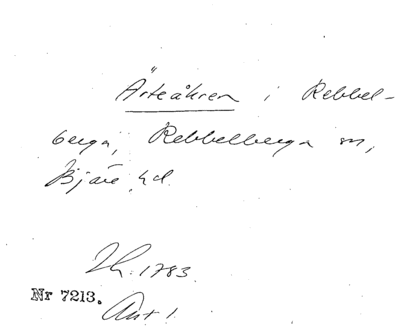 Ärteåkren i Rebbel-
berga, Rebbelberga sn,
Bjäre hd.
Nr 7213.
Akt 1.